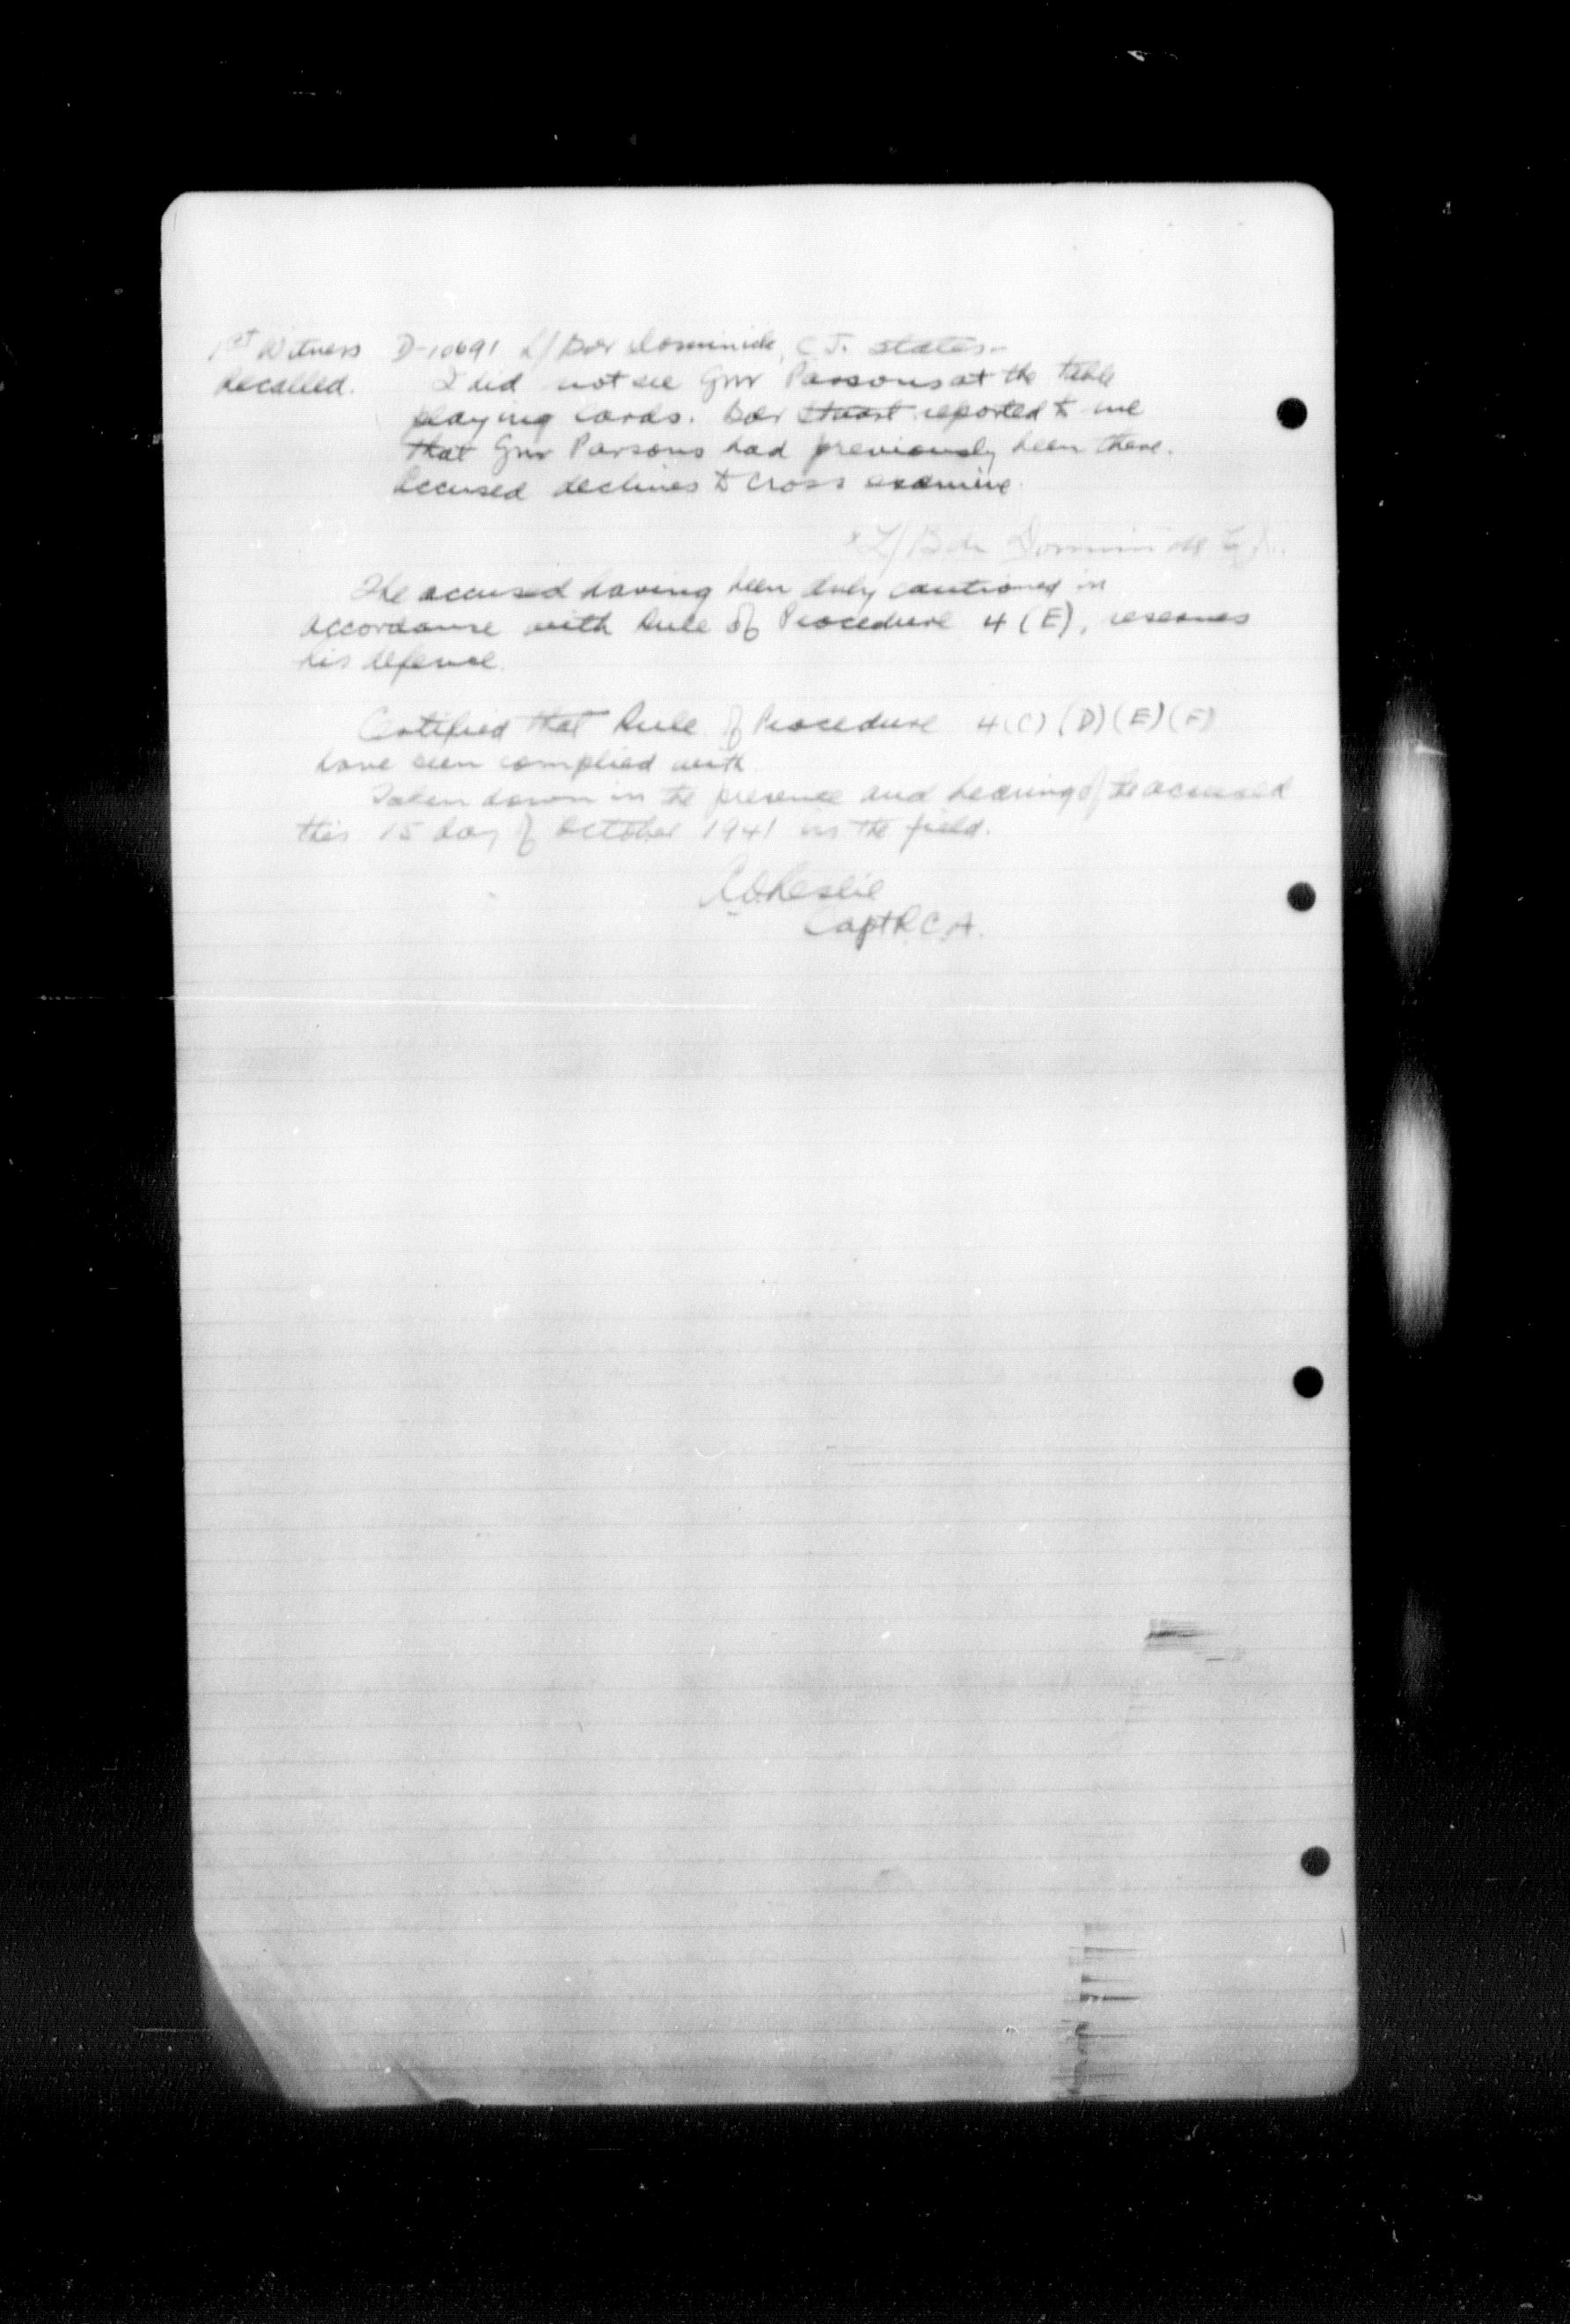 1st Witness D-10691 L/Bdr Dominick, C J. states.-
Recalled. I did not see Gnr Parsons at the table
playing cards. Bdr Stuart reported to me
that Gnr Parsons had previously been there.
Accused declines to cross examine.
L/Bdr Dominick C.J.
The accused having been duly cautioned in
accordance with Rule of Procedure 4 (E), reserves
his defence.
Certified that Rule of Procedure 4(C) (D) (E) (F)
have been complied with.
Taken down in the presence and hearing of the accused
this 15 day of October 1941 in the field.
Leslie
Capt R.C.A.